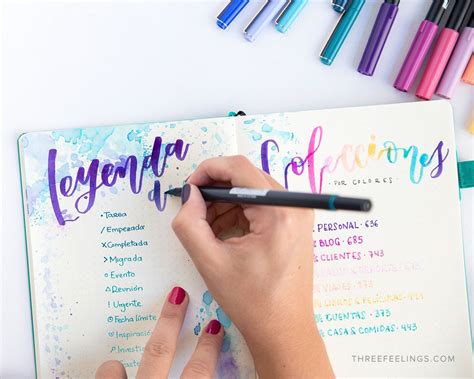 Leyenda
d
• Tarea
/ Empezada
× Completada
> Migrada
○ Evento
△ Reunión
! Urgente
Fecha límite
Inspiración
Investi
Colecciones
POR COLORES
PERSONAL · 636
BLOG · 685
CLIENTES · 743
DE VIAJES
DE CUENTAS · 373
DE CASA & COMIDAS · 443
THREEFEELINGS.COM